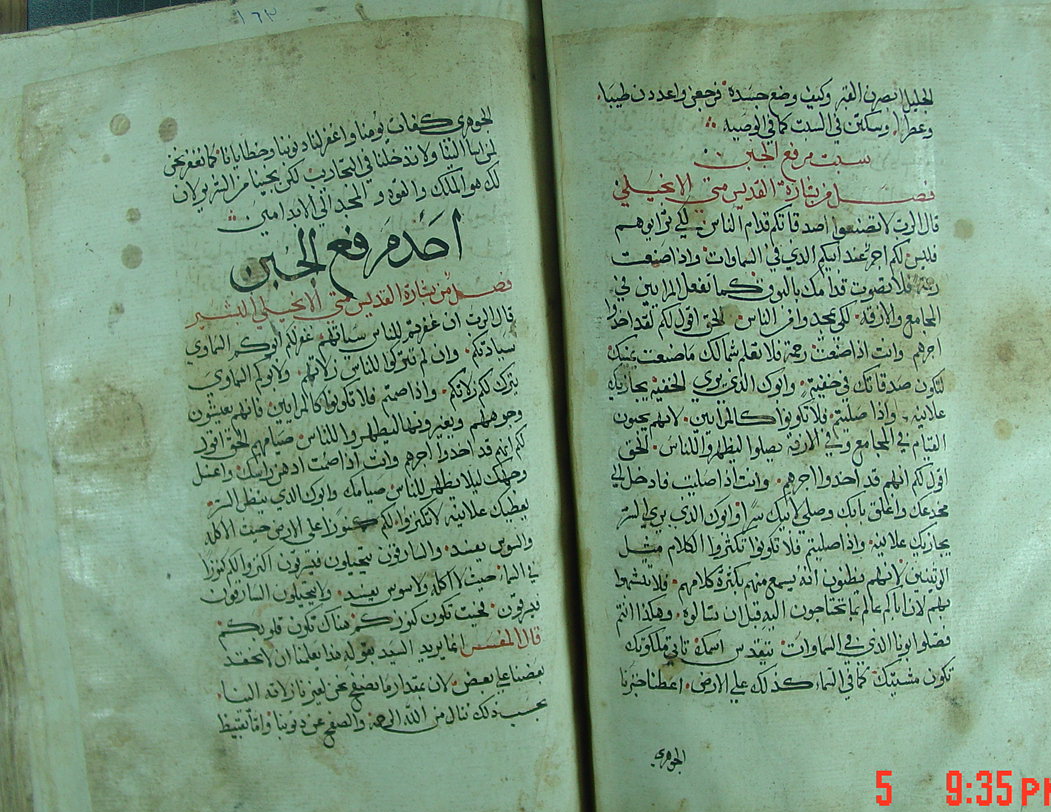 الجليل ابصرن القبر وكيف وضع جسده فرجعن واعددن طيبا
وعطرا وسكتن في السبت كما في الوصيه
سبت مرفع الجبن
فصل من بشارة القديس متى الانجيلي
قال الرب لا تصنعوا صدقاتكم قدام الناس لكي تراووهم
فليس لكم اجر عند ابيكم الذي في السماوات واذا صنعت
رحمة فلا تصوت قدامك بالبوق كما تفعل المرايين في
المجامع والازقة لكي يمجدوا من الناس الحق اقول لكم لقد اخذوا
اجرهم وانت اذا صنعت رحمة فلا تعلم شمالك ما صنعت يمينك
لتكون صدقاتك في خفية وابوك الذي يرى الخفية يجازيك
علانية واذا صليتم فلا تكونوا كالمرايين لانهم يحبون
القيام في المجامع وفي الازقة يصلوا ليظهروا للناس الحق
اقول لكم انهم قد اخذوا اجرهم وانت اذا صليت فادخل الى
مخدعك واغلق بابك وصلي لابيك سرا وابوك الذي يرى السر
يجازيك علانية واذا صليتم فلا تكونوا تكثروا الكلام مثل
الوثنيين لانهم يظنون انه يسمع منهم بكثرة كلامهم فلا تتشبهوا
بهم لان اباكم عالم بما تحتاجون اليه قبل ان تسالوه وهكذا انتم
فصلوا ابونا الذي في السماوات يتقدس اسمك تاتي ملكوتك
تكون مشيتك كما في السماء كذلك على الارض اعطنا خبزنا
الجوهري
١٦٢
الجوهري كفاف يومنا واغفر لنا ذنوبنا وخطايانا كما نغفر نحن
لمن اسا الينا ولا تدخلنا في التجارب لكن نجينا من الشرير لان
لك هو الملك والقوة والمجد الى الابد امين
احد مرفع الجبن
فصل من بشارة القديس متى الانجيلي البشير
قال الرب ان غفرتم للناس سياتهم غفر لكم ابوكم السماوي
سياتكم وان لم تتركوا للناس زلاتهم ولا ابوكم السماوي
يترك لكم زلاتكم واذا صمتم فلا تكونوا كالمرايين فانهم يعبسون
وجوههم ويغيرونها ليظهروا للناس صيامهم الحق اقول
لكم انهم قد اخذوا اجرهم وانت اذا صمت ادهن راسك واغسل
وجهك ليلا يظهر للناس صيامك وابوك الذي ينظر السر
يعطيك علانية لا تكنزوا لكم كنوزا على الارض حيث الاكلة
والسوس يفسد والسارقون يتحيلون فيسرقون اكنزوا لكم كنوزا
في السماء حيث لا اكلة ولا سوس يفسد ولا يتحيلون السارقون
فيسرقون فحيث تكون كنوزكم هناك تكون قلوبكم
قال المفسر انما يريد السيد بقوله هذا يعلمنا ان لا نحقد
بعضنا على بعض لان بمقدار ما نصفح نحن لغيرنا زلاته الينا
بحسب ذلك ننال من الله الرحمة والصفح عن ذنوبنا
5 9:35 PM